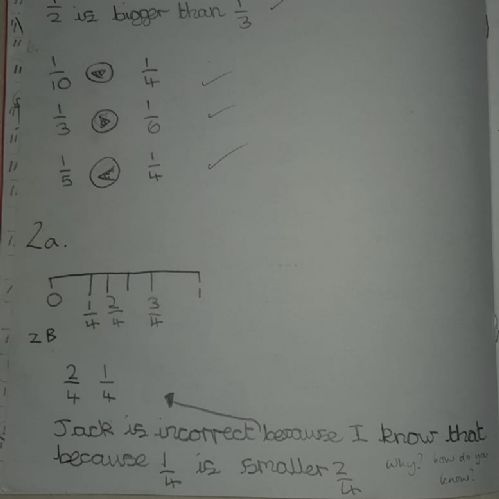 1/2 is bigger than 1/3
1/10 < 1/4
1/3 > 1/6
1/5 < 1/4
2a.
0 1/4 2/4 3/4 1
2B
2/4 1/4
Jack is incorrect because I know that
because 1/4 is smaller 2/4
why? how do you
know?